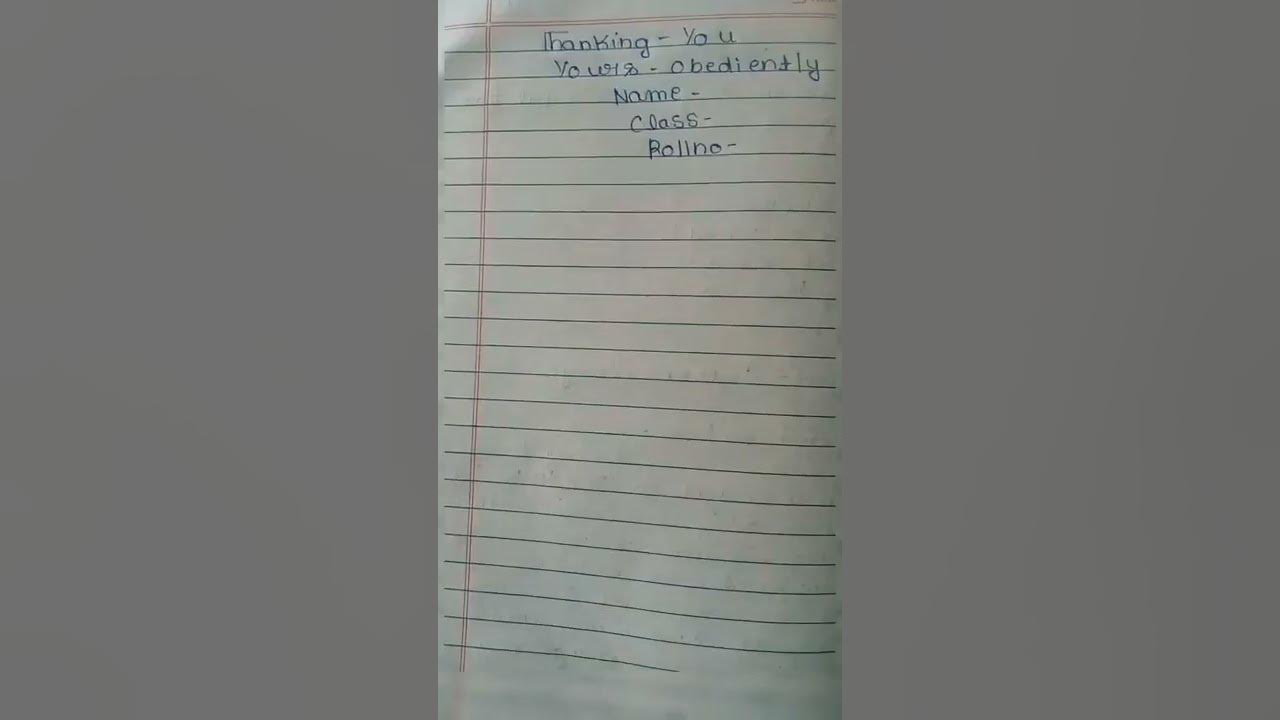 Thanking - You
Yours - obediently
Name -
Class -
Rollno -